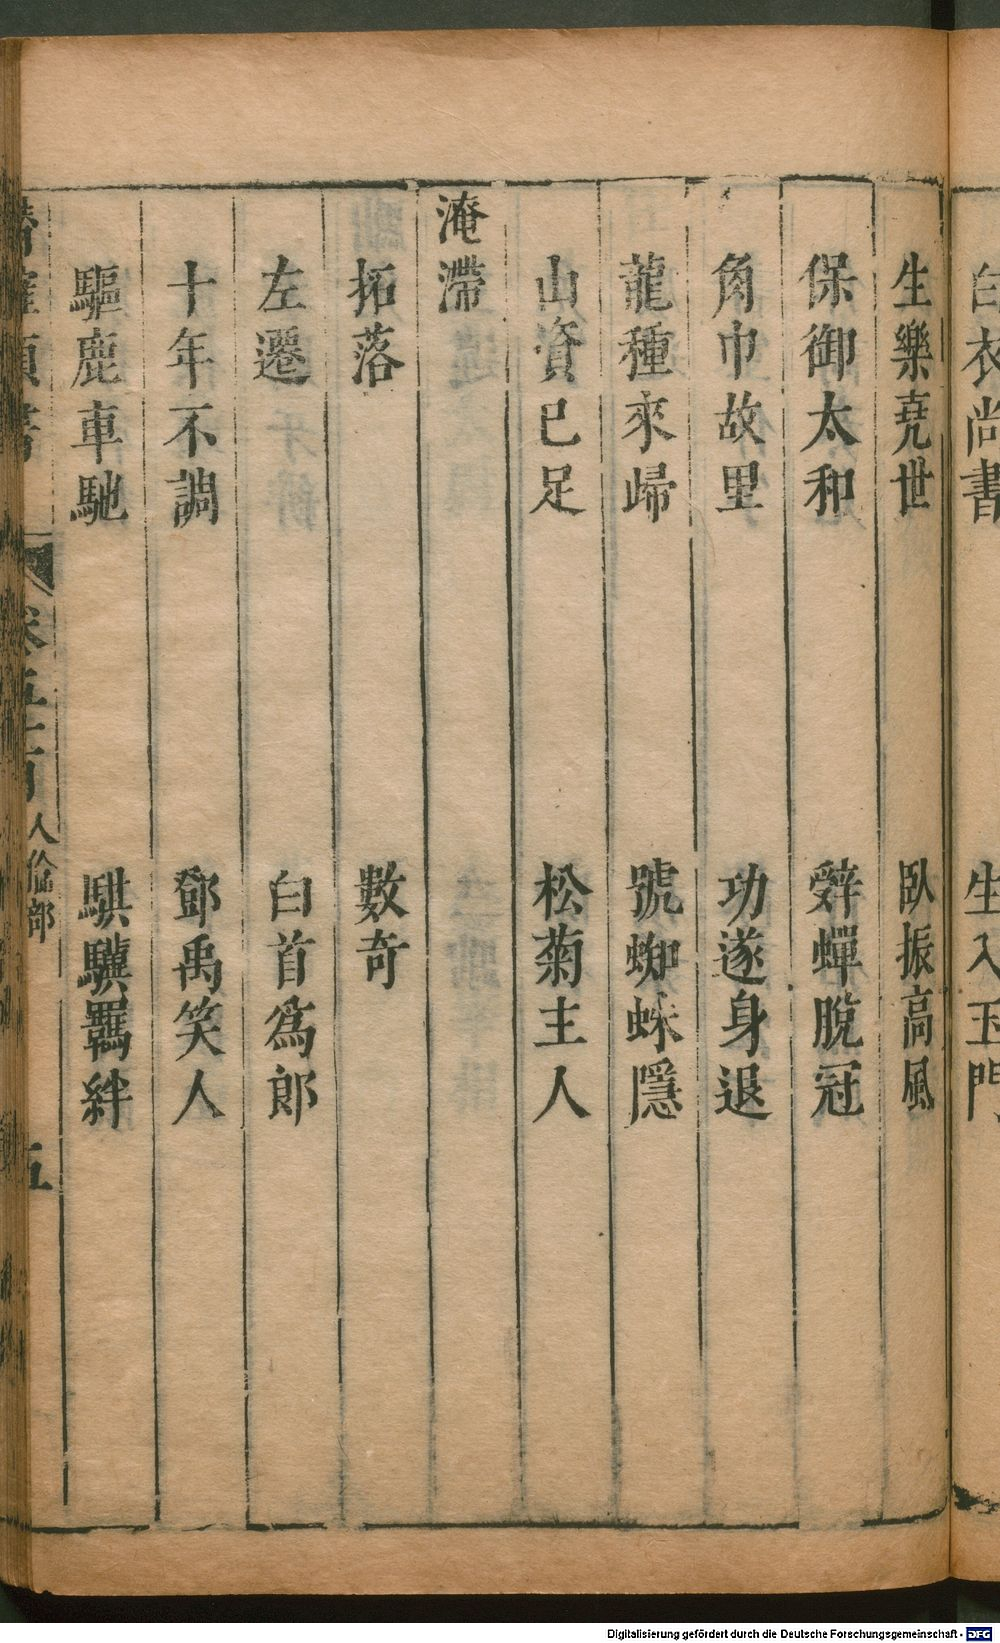 白衣尚書　生入玉門
生樂堯世　臥振高風
保御太和　辭蟬脫冠
角巾故里　功遂身退
龍種來歸　號蜘蛛隱
山資已足　松菊主人
淹滯
拓落　數奇
左遷　白首爲郎
十年不調　鄧禹笑人
驅鹿車馳　騏驥羈絆
卷五百　人倫部　五
Digitalisierung gefördert durch die Deutsche Forschungsgemeinschaft - DFG